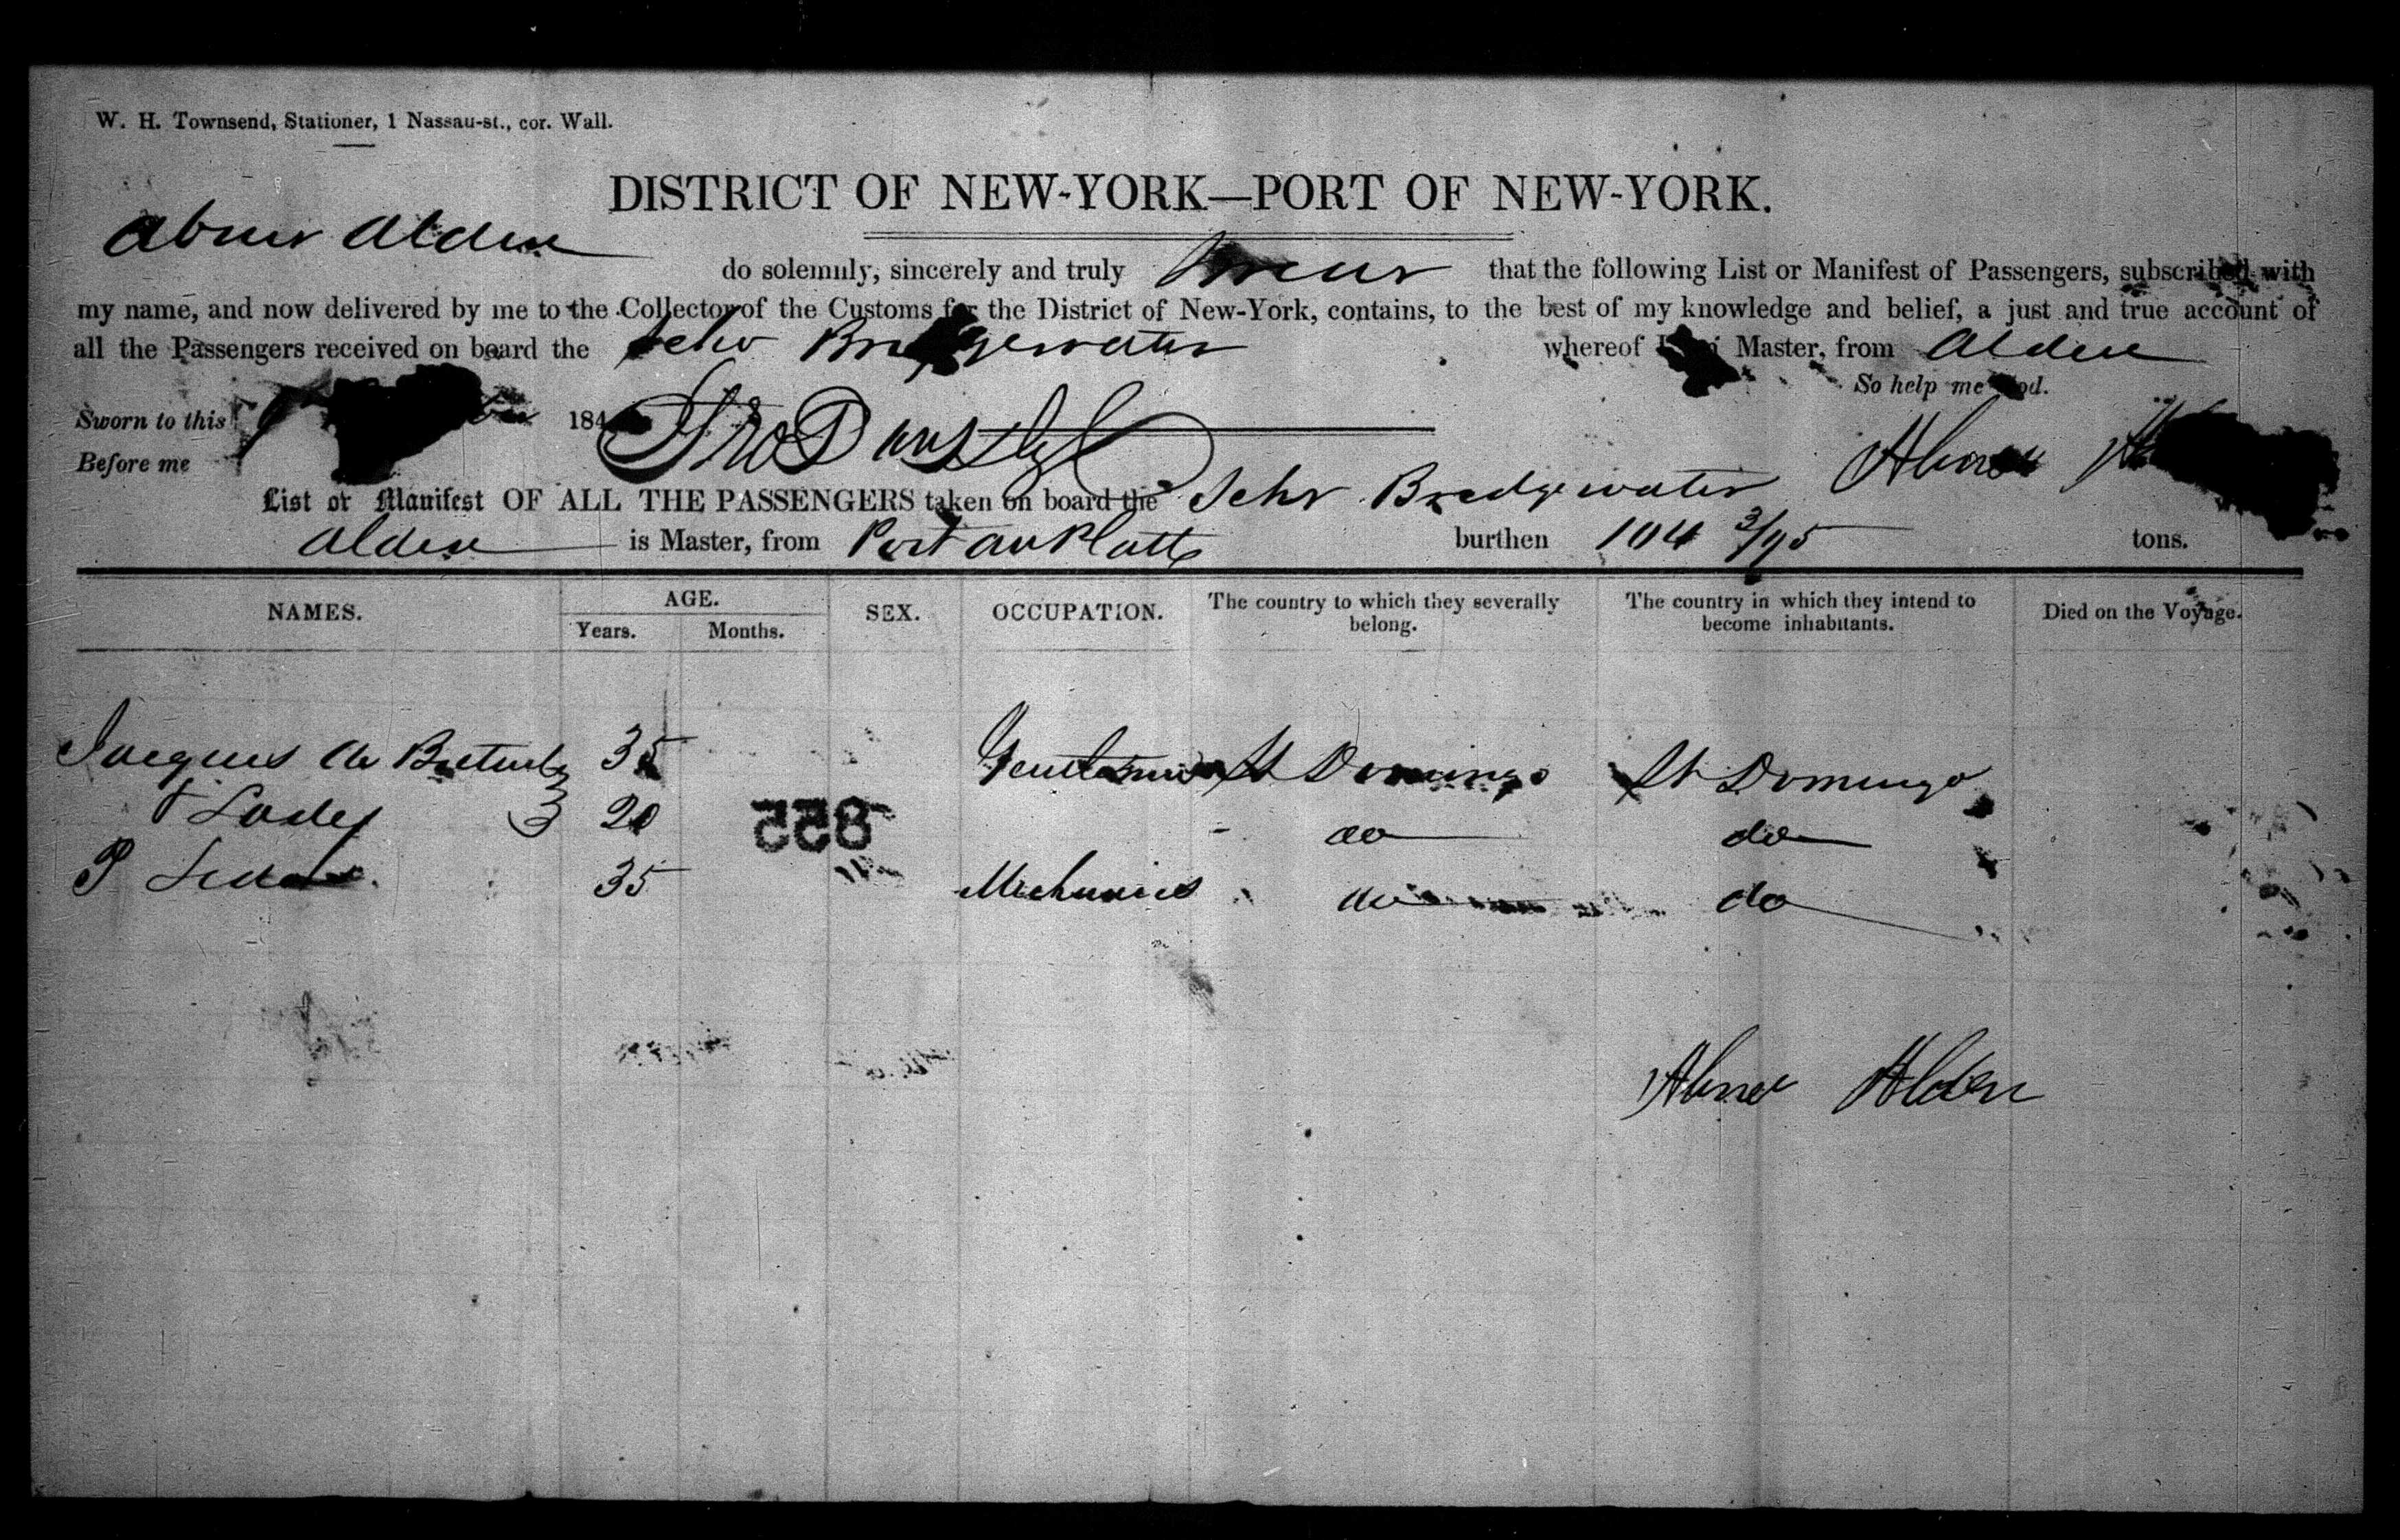 W. H. Townsend, Stationer, 1 Nassau-st., cor. Wall.
DISTRICT OF NEW-YORK—PORT OF NEW-YORK.
Abner Alden
do solemnly, sincerely and truly Swear that the following List or Manifest of Passengers, subscribed with
my name, and now delivered by me to the Collector of the Customs for the District of New-York, contains, to the best of my knowledge and belief, a just and true account of
all the Passengers received on board the Schr Bridgewater whereof I am Master, from Alden
So help me God.
Sworn to this 184
Before me
Abner
List or Manifest OF ALL THE PASSENGERS taken on board the Schr Bredgewater
Alden is Master, from Port au Platte burthen 104 3/95 tons.
NAMES. AGE. SEX. OCCUPATION. The country to which they severally belong. The country in which they intend to become inhabitants. Died on the Voyage.
Years. Months.
Jacques 35 Gentleman St Domingo St Domingo
& Lady 20 do do
P 35 Mechanics do do
855
Abner Alden